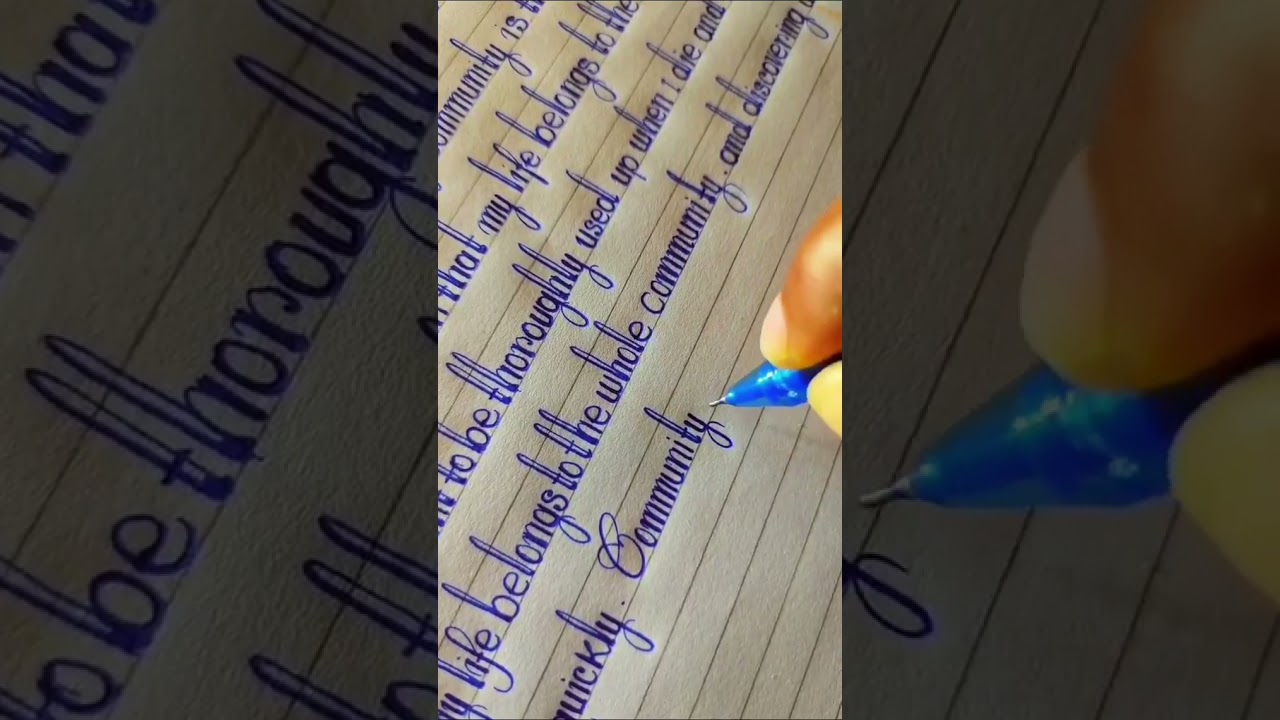 community is
that my life belongs to the
to be thoroughly used up when i die and
my life belongs to the whole community. and discovering
quickly. Community